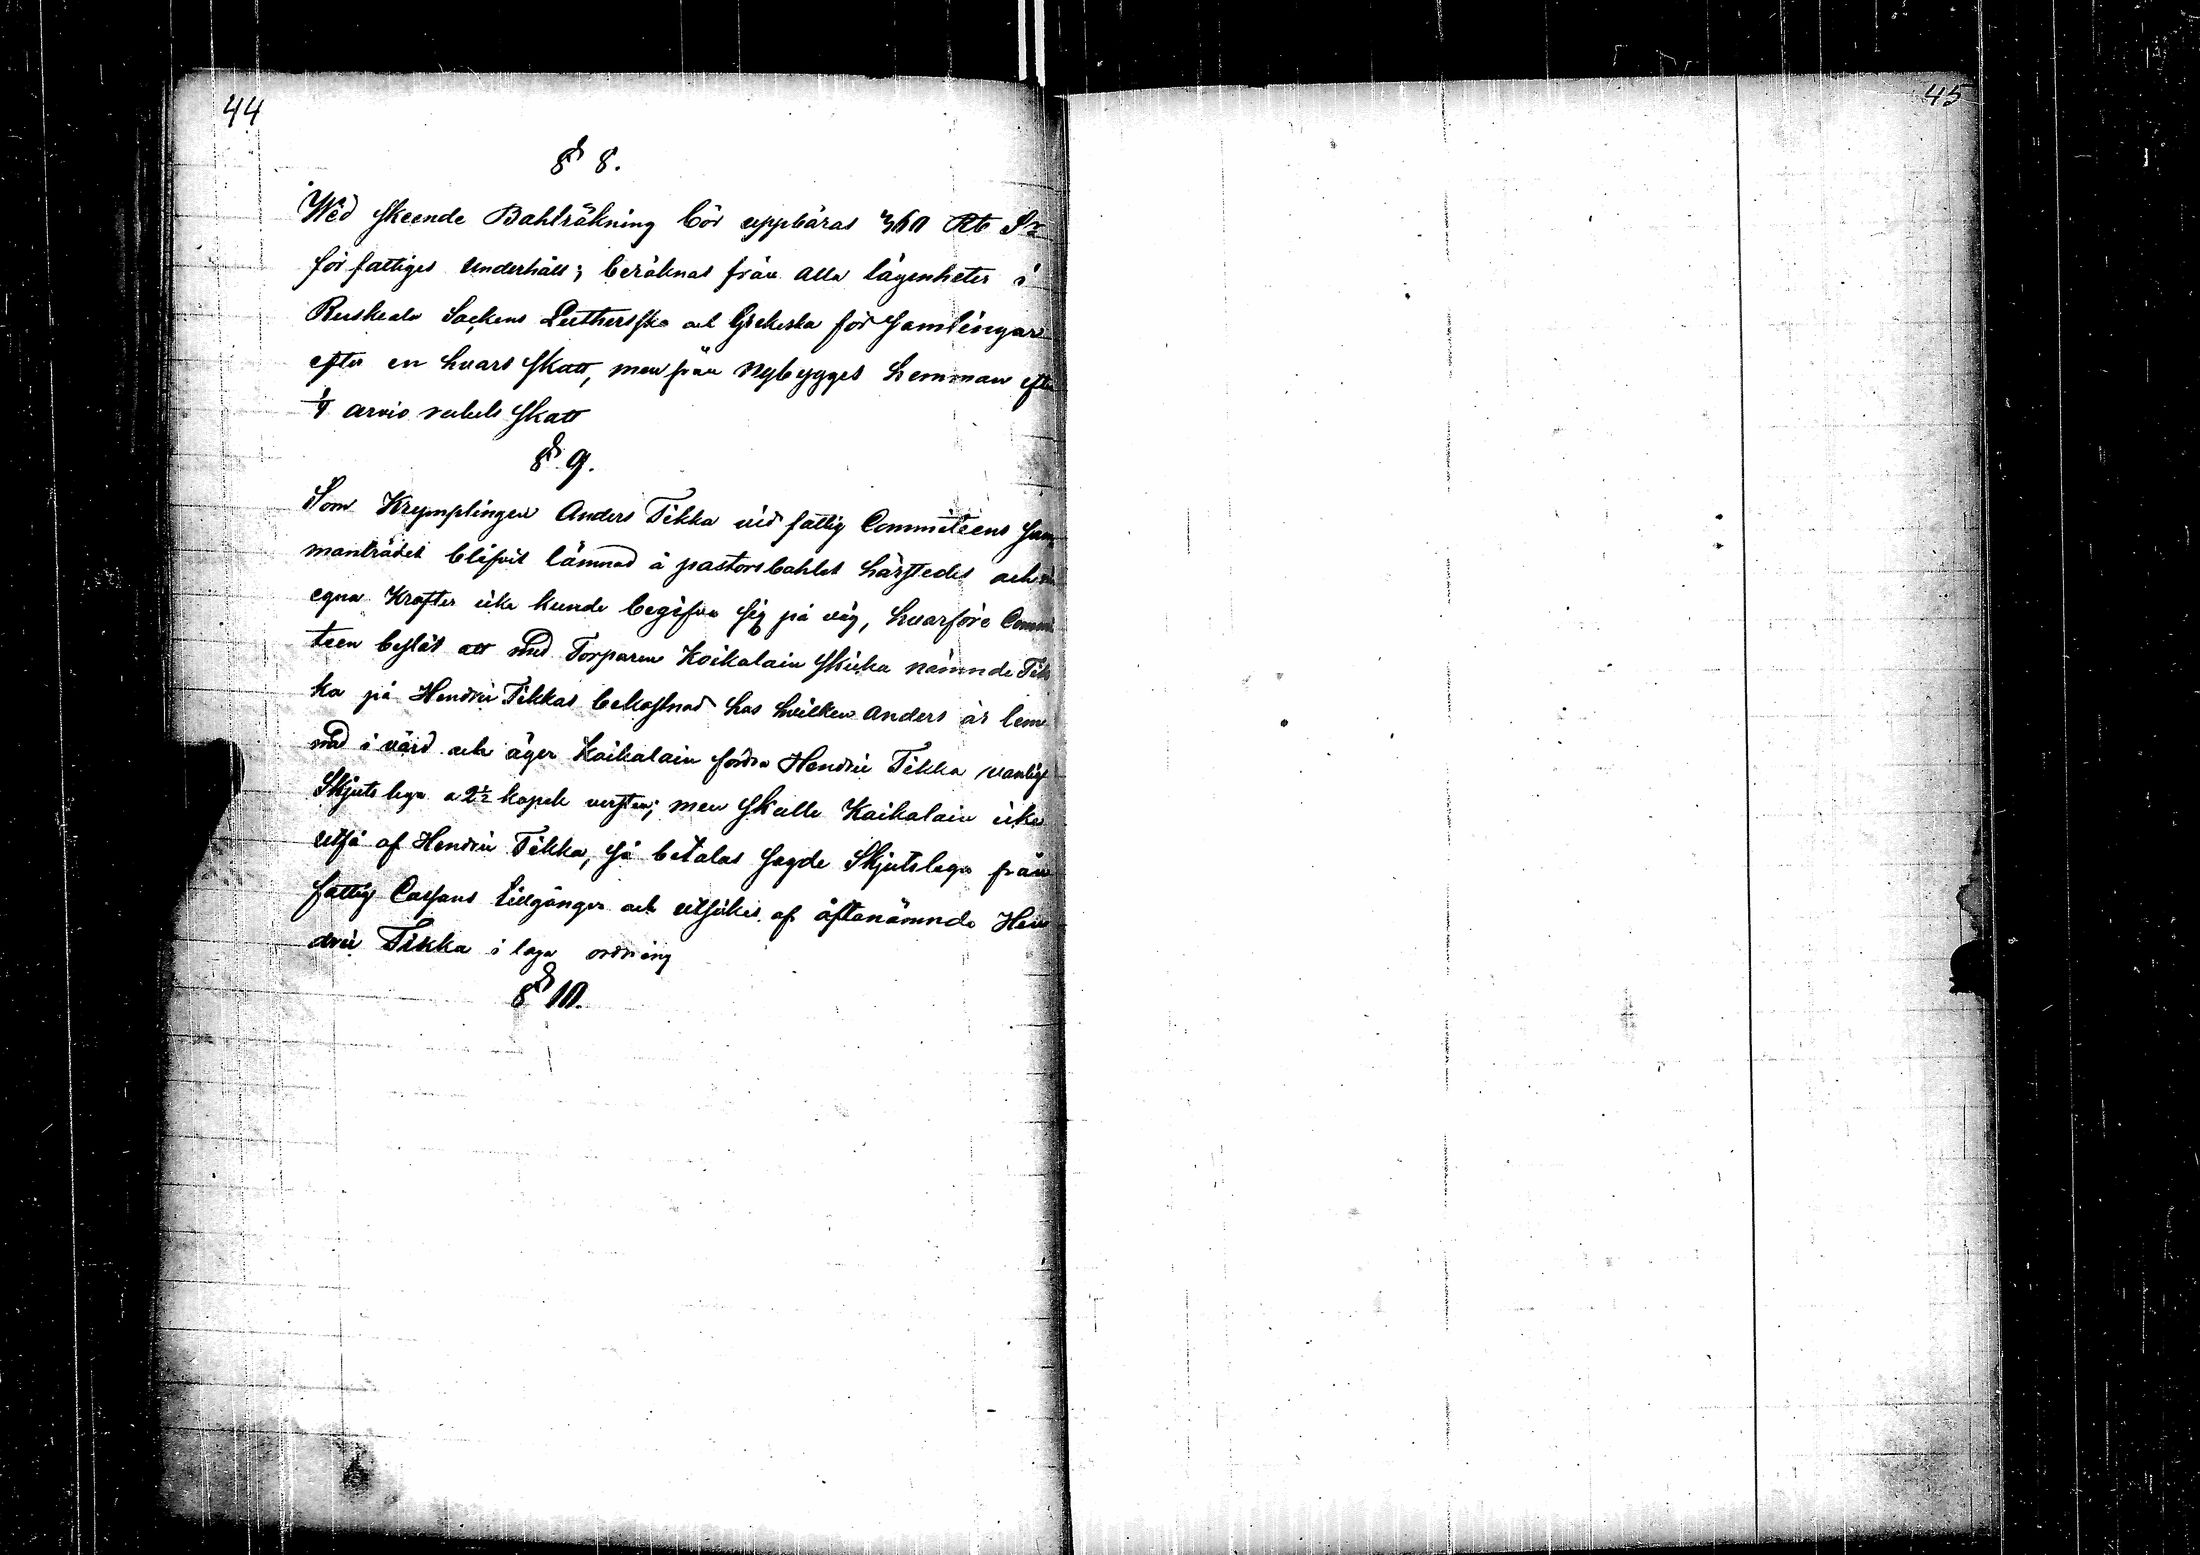 44
§ 8.
Wid skeende Bahlräkning bör uppbäras 360 Rb Sr
för fattiges underhåll; beräknat från alla lägenheter i
Ruskeala Sockens Lutherska och Grekeska församlingar
efter en hvars skatt, men från Nybygges hemman efter
arvio rubels skatt
§ 9.
Som Krymplingen Anders Tikka vid fattig Committeens sam
manträdet blifvit lämnad å pastorsbohlet härstedes och
egna Krafter icke kunde begifva sig på väg, hvarföre Commi
teen beslöt att med Torparen Koikalain skicka nämnde Tik
ka på Hendric Tikkas bekostnad hos hvilken Anders är lem
nad i vård och äger Koikalain fordra Hendric Tikka vanlig
Skjuts lega a 2½ kopek versten; men skulle Kaikalain icke
utfå af Hendric Tikka, så betalas sagde Skjutslega från
fattig Cassans tillgångar och utsökes af oftanämnde Hen
dric Tikka i laga ordning
§ 10.
45